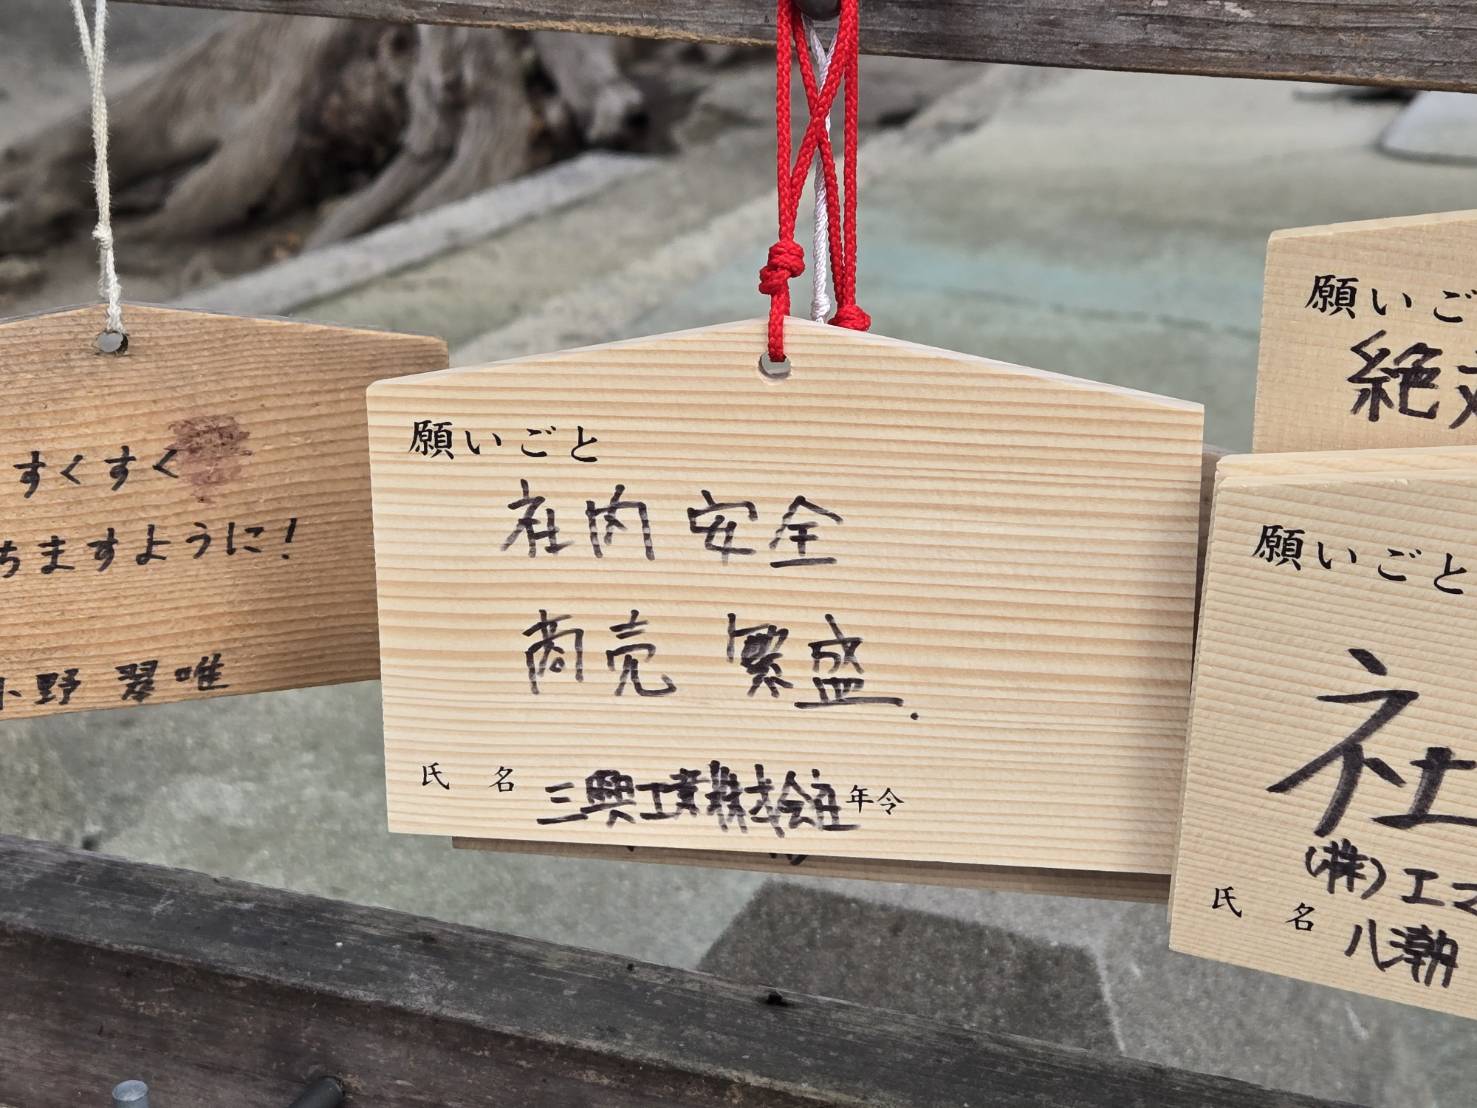 すくすく
ちますように!
小野 翠唯
願いごと
社内 安全
商売 繁盛.
氏 名 三興工業株式会社 年令
願いご
絶対
願いごと
社
(株)エマ
氏 名 八潮